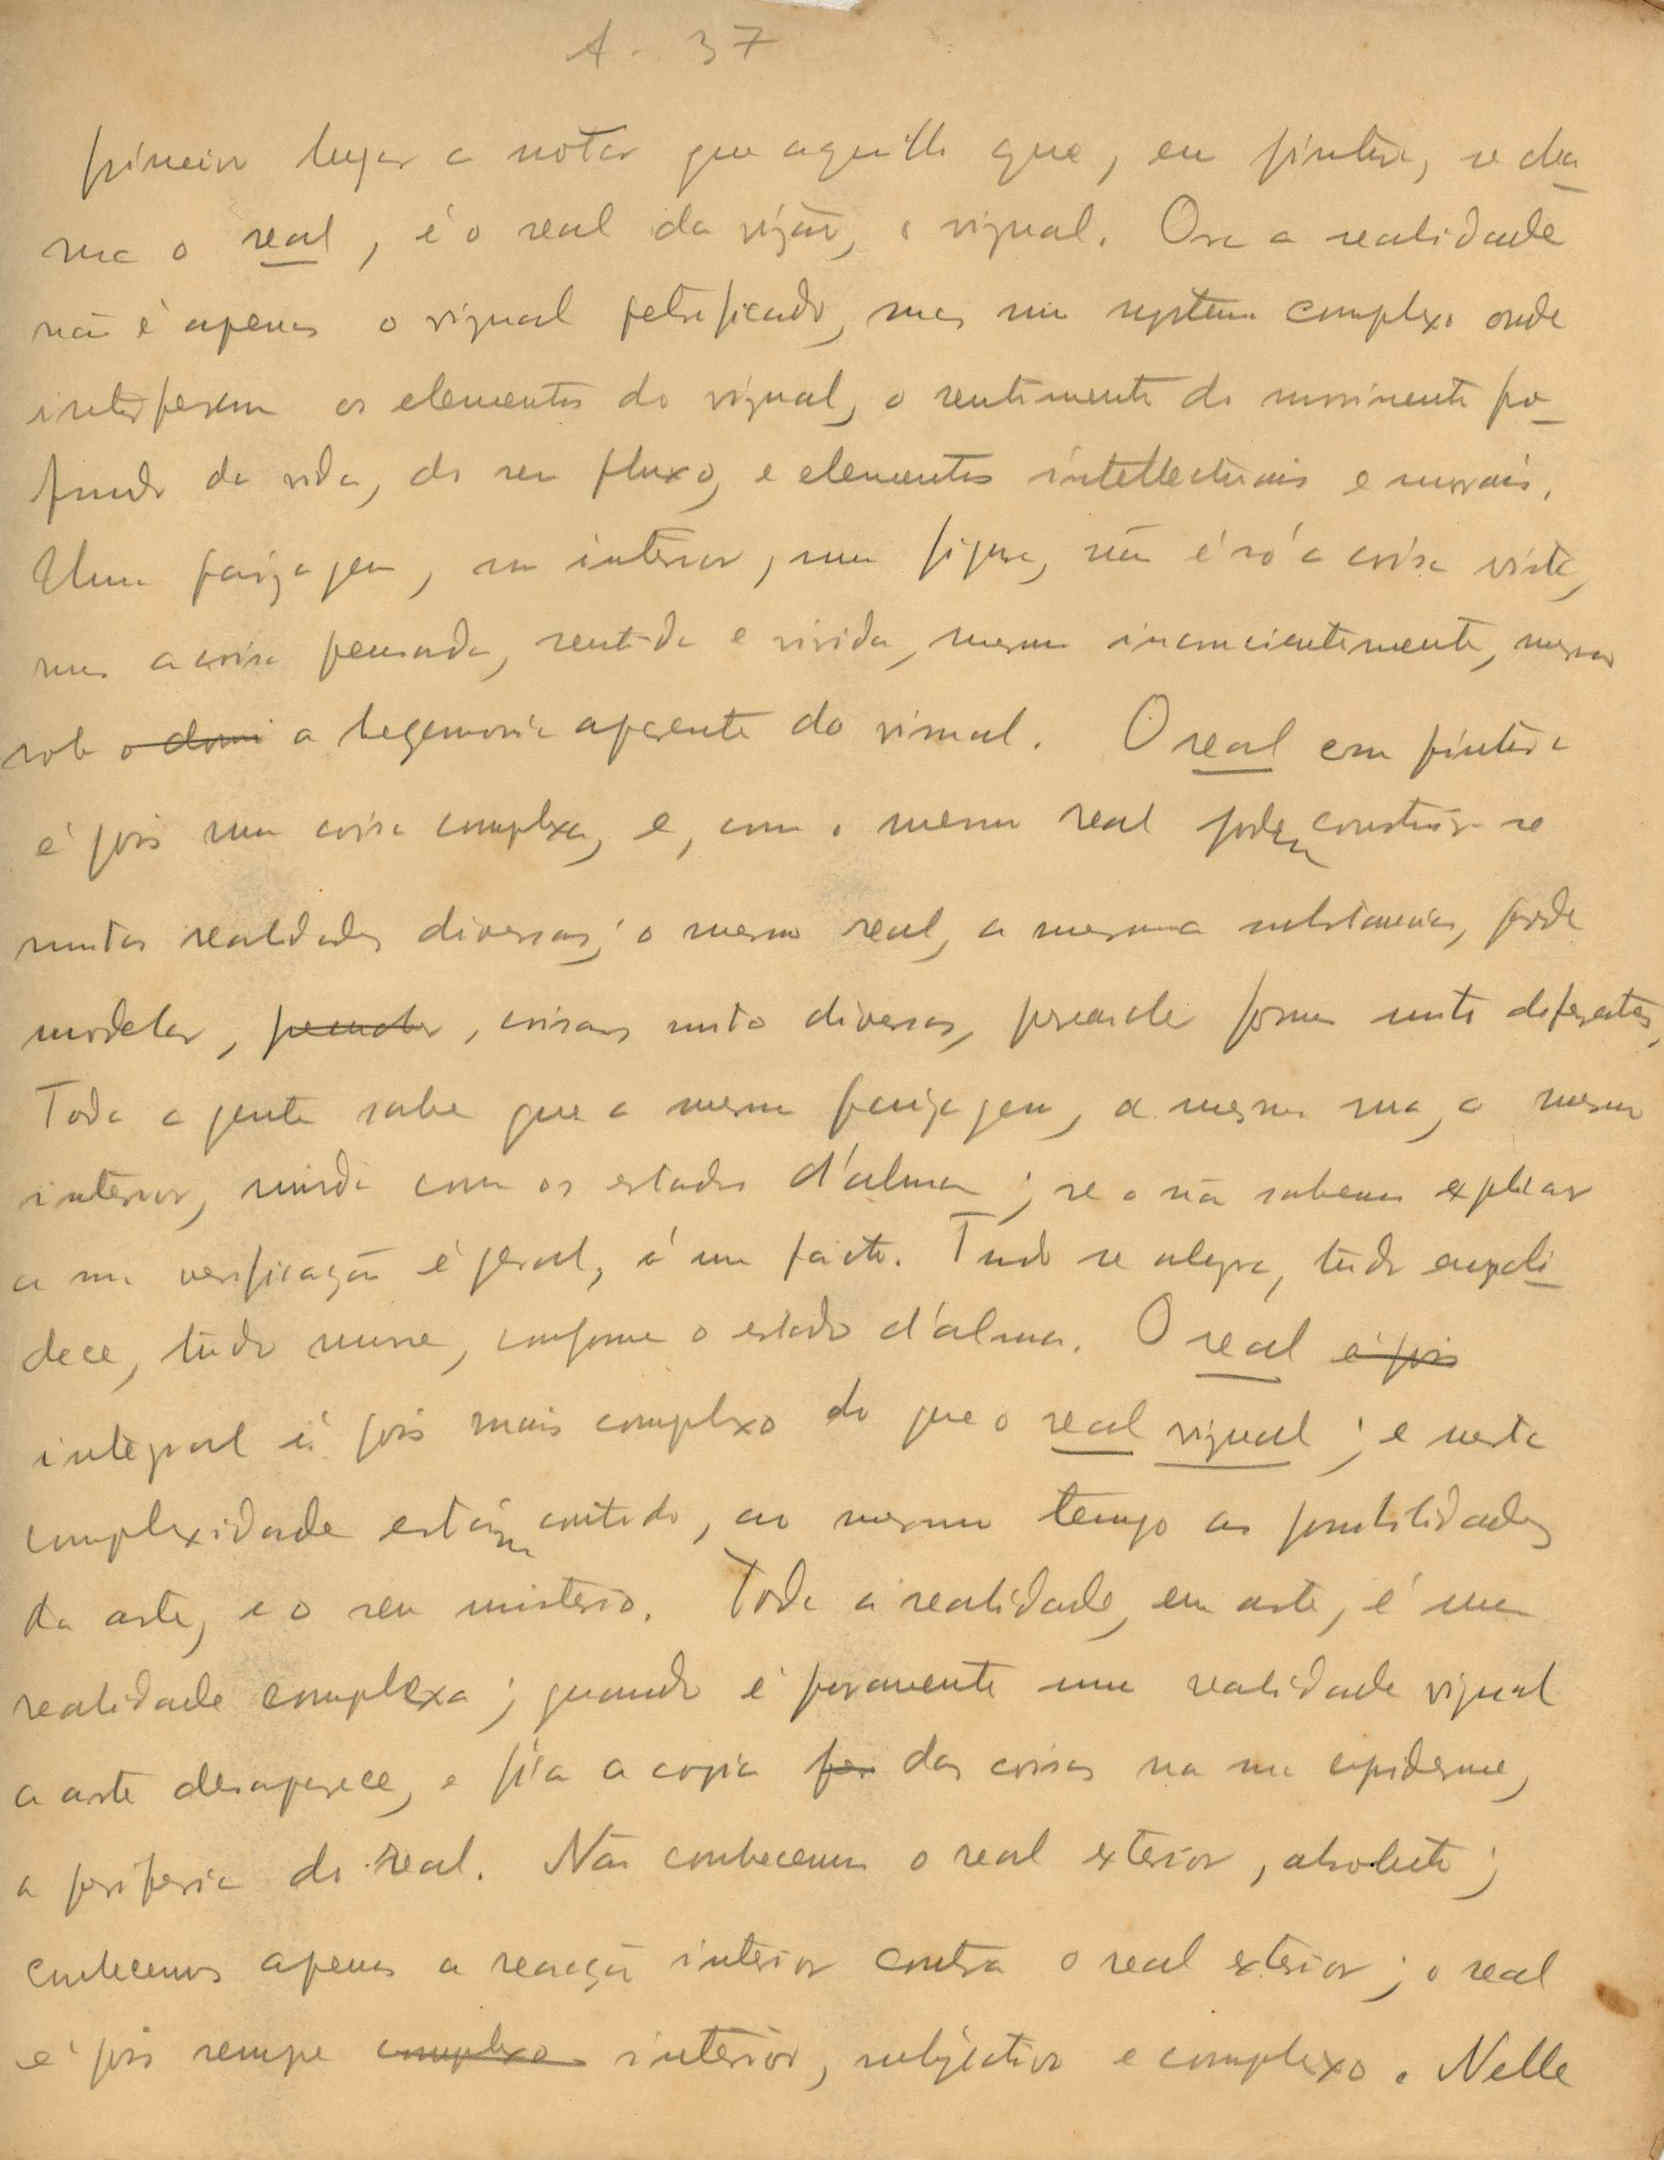 A. 37
primeiro lugar a notar que aquillo que, em pintura, se cha-
ma o real, é o real da vizão, o vizual. Ora a realidade
não é apenas o vizual petrificado, mas um systema complexo onde
interferem os elementos do vizual, o sentimento do movimento pro-
fundo da vida, do seu fluxo, e elementos intellectuais e morais.
Uma paizagem, um interior, uma figura, não é só a coisa vista,
mas a coisa pensada, sentida e vivida, mesmo inconscientemente, mesmo
sob o domi a hegemonia aparente do visual. O real em pintura
é pois uma coisa complexa, e, com o mesmo real podem construir-se
muitas realidades diversas; o mesmo real, a mesma substancia, pode
modelar, coisas muito diversas, formas muito diferentes,
Toda a gente sabe que a mesma paizagem, a mesma rua, o mesmo
interior, muda com os estados d'alma; se o não sabemos explicar
a sua verificação é geral, é um facto. Tudo se alegra, tudo empali-
dece, tudo morre, conforme o estado d'alma. O real é pois
integral é pois mais complexo do que o real vizual; e nesta
complexidade estão contido, ao mesmo tempo as possibilidades
da arte, e o seu misterio. Toda a realidade, em arte, é uma
realidade complexa; quando é puramente uma realidade vizual
a arte desaparece, e fica a copia das coisas na sua epiderme,
a periferia do real. Não conhecemos o real exterior, absoluto;
conhecemos apenas a reacção interior contra o real exterior; o real
é pois sempre complexo interior, subjectivo e complexo. Nelle